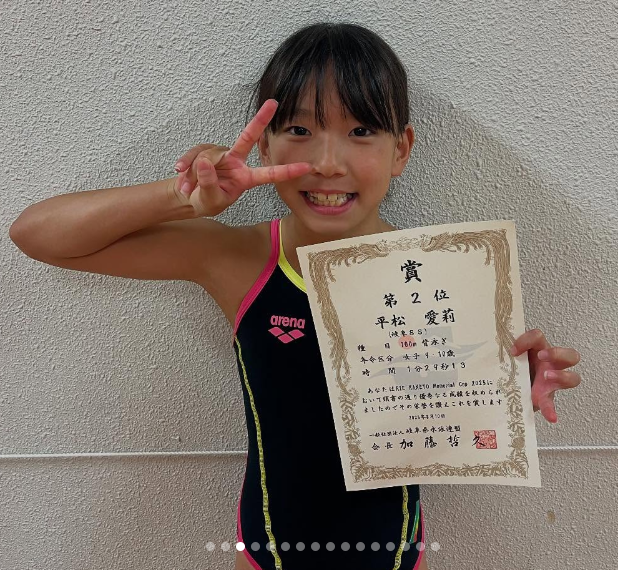 arena
賞
第 2 位
平松 愛莉
(岐阜SS)
種 目 100m 背泳ぎ
年令区分 女子 9、10歳
時 間 1分29秒13
Memorial Cup 2025に
おいて頭書の通り優秀なる成績を収められ
ましたのでその栄誉を讃えこれを賞します
一般社団法人岐阜県水泳連盟
会長 加藤哲久